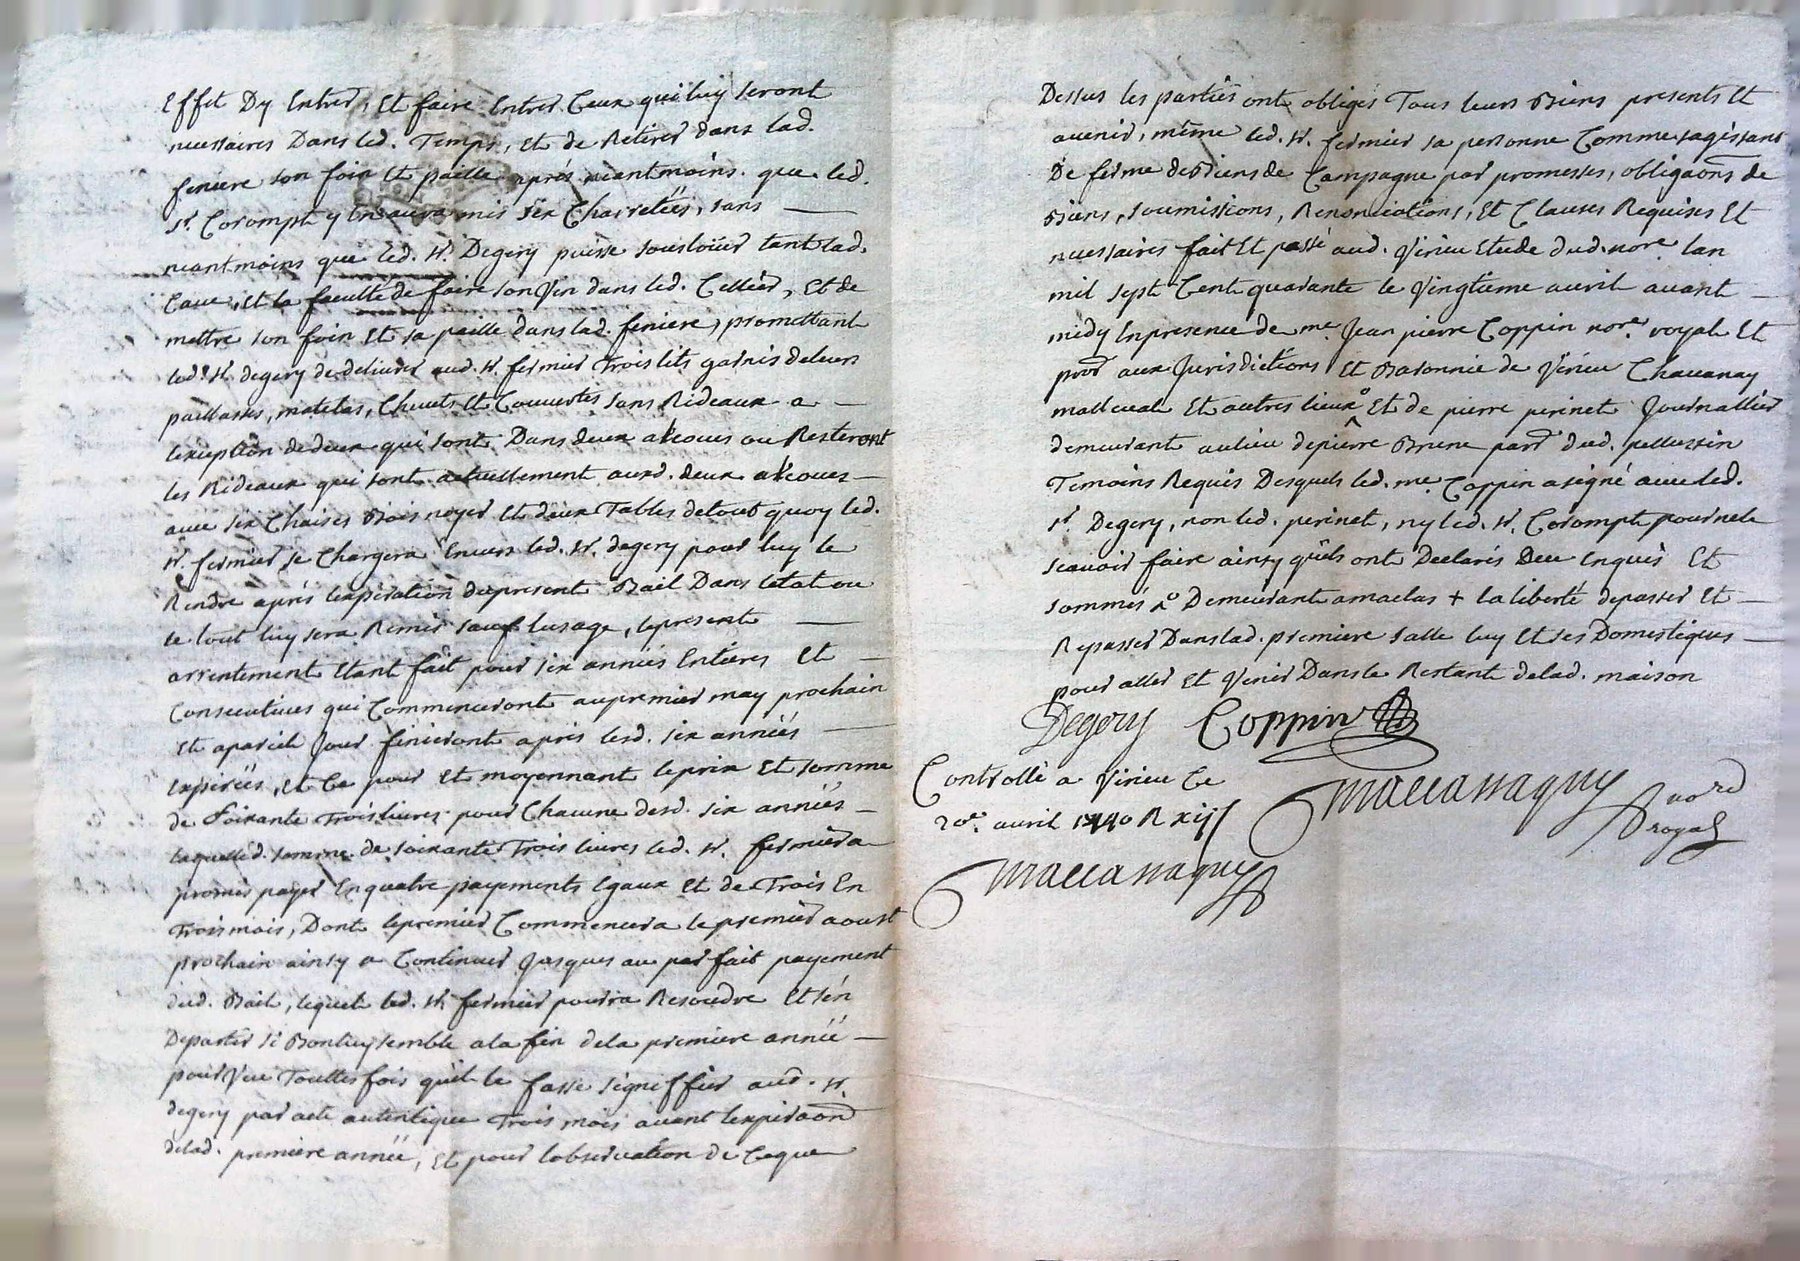 Effet Dy Entrer, Et faire Entrer Ceux qui luy seront
necessaires Dans led. Temps, Et de Retirer dans lad.
feniere son foin Et paille après neantmoins que led.
sr. Corompt y En aura mis six Charretées, sans
neantmoins que led. sr. Degery puisse souslouer tant lad.
Cave, Et la faculté de faire son Vin dans led. Cellier, Et de
mettre son foin Et sa paille dans lad. feniere, promettant
led. sr. degery de delivrer aud. sr. fermier Trois lits garnis de leurs
paillasses, matelas, Chevets Et Couvertes sans Rideaux a
lexeption de deux qui sont Dans deux alcoves ou Resteront
les Rideaux qui sont actuellement auxd. deux alcoves
avec six Chaises Bois noyer Et deux Tables de tout quoy led.
sr. fermier se Chargera Envers led. sr. degery pour luy le
Rendre après lexpiration du present Bail Dans letat ou
le tout luy sera Remis sauf lusage, le present
arrentement Etant fait pour six années Entieres Et
Consecutives qui Commenceront au premier may prochain
Et a pareil Jour finiront après lesd. six années
Expirées, Et Ce pour Et moyennant le prix Et somme
de soixante Trois livres pour Chacune desd. six années
laquelle d. somme de soixante Trois livres led. sr. fermier a
promis payer En quatre payements Egaux Et de Trois En
Trois mois, Dont le premier Commencera le premier aoust
prochain ainsy a Continuer Jusques au parfait payement
dud. Bail, lequel led. sr. fermier pourra Resoudre Et sen
Departir si Bon luy semble a la fin de la premiere année
pourvue Touttes fois quil le fasse signiffier aud. sr.
degery par acte autentique Trois mois avant lexpiraon
delad. premiere année, Et pour lobservation de Ceque
Dessus les parties ont obliges Tous leurs Biens presents Et
avenir, même led. sr. fermier sa personne Comme sagissant
De ferme de Biens de Campagne par promesses, obligaons de
Biens, soumissions, Renonciations, Et Clauses Requises Et
necessaires fait Et passé aud. Virieu Etude dud. nore. lan
mil sept Cent quarante le Vingtieme avril avant
midy En presence de me. Jean pierre Coppin nore. royal Et
procr aux Jurisdictions Et Baronnie de Virieu Chavanay
malleval Et autres lieux Et de pierre perinet Journallier
demeurant au lieu de pierre Brune parr dud. pellussin
Temoins Requis Desquels led. me. Coppin a signé avec led.
sr. Degery, non led. perinet, ny led. sr. Corompt pour ne le
scavoir faire ainsy quils ont Declarés Deu Enquis Et
sommés Demeurant a maclas + la liberté de passer Et
Repasser Dans lad. premiere salle luy Et ses Domestiques
pour aller Et Venir Dans le Restant de lad. maison
Degery Coppin
Controllé a Virieu Ce
20e. avril 1740 R xij s
Maccassaguy nore
royal
Maccassaguy